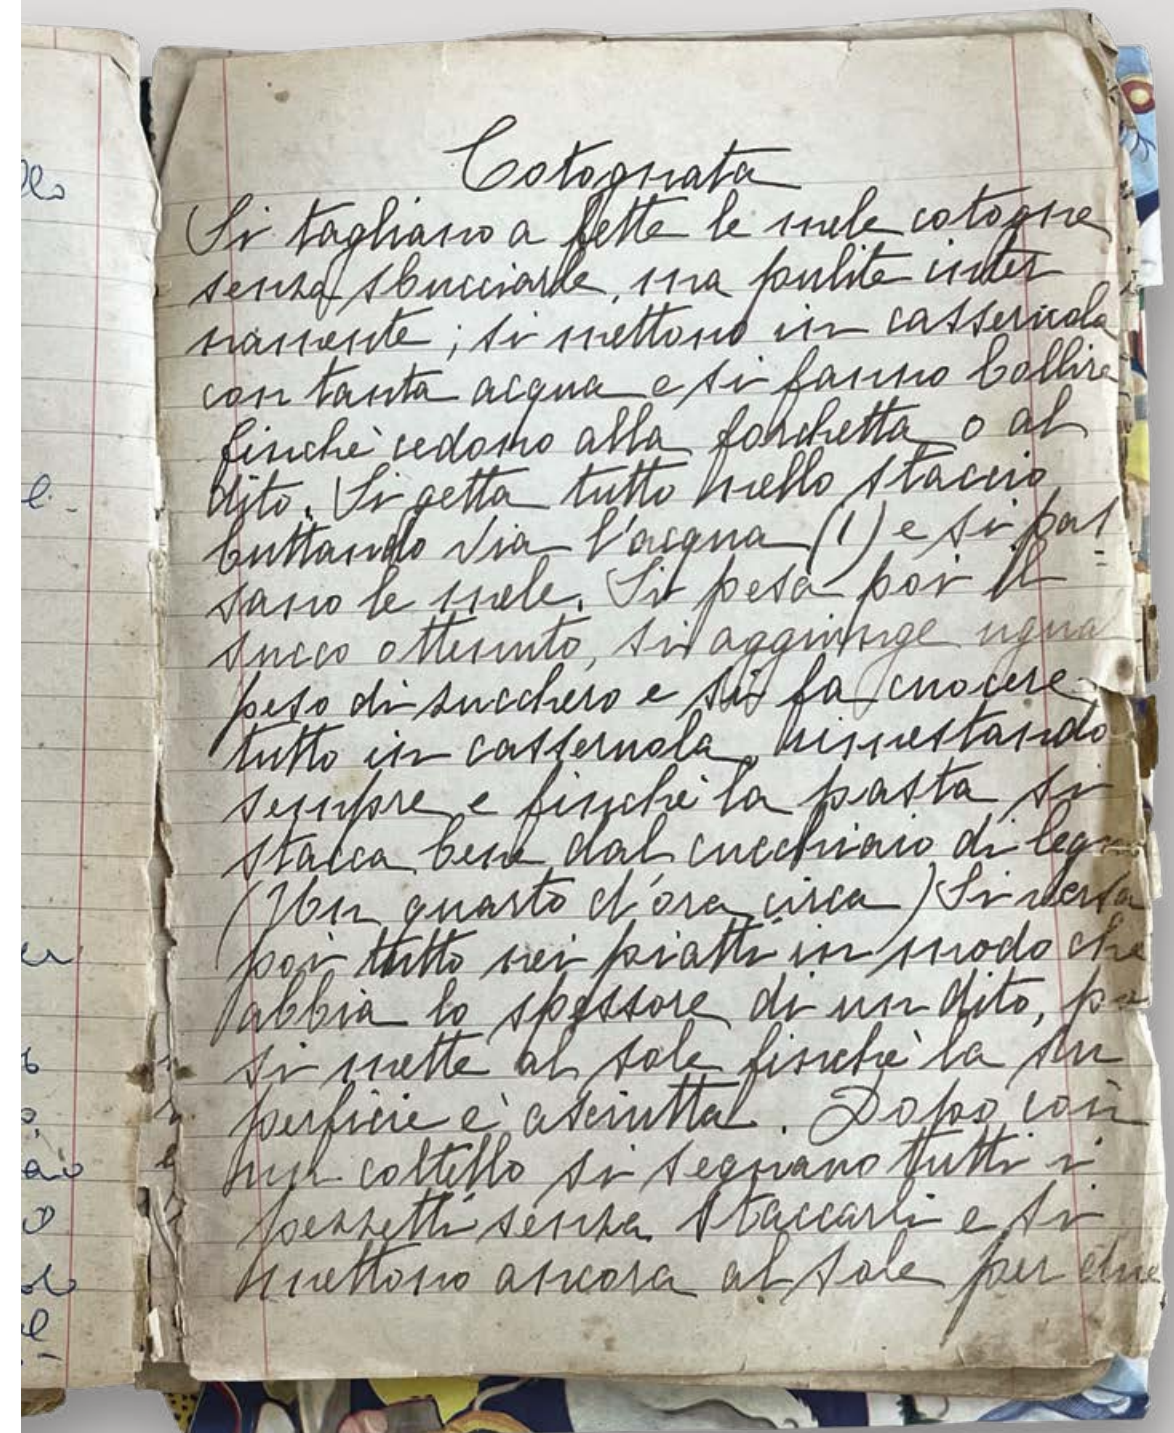 Cotognata
Si tagliano a fette le mele cotogne
senza sbucciarle, ma pulite inter
namente; si mettono in casseruola
con tanta acqua e si fanno bollire
finchè cedono alla forchetta o al
dito. Si getta tutto nello staccio
buttando via l'acqua (1) e si pas=
sano le mele. Si pesa poi il
succo ottenuto, si aggiunge ugual
peso di zucchero e si fa cuocere
tutto in casseruola, rimestando
sempre e finchè la pasta si
stacca bene dal cucchiaio di legno
(Un quarto d'ora circa) Si versa
poi tutto nei piatti in modo che
abbia lo spessore di un dito, poi
si mette al sole finchè la su
perficie è asciutta. Dopo con
un coltello si segnano tutti i
pezzetti senza staccarli e si
mettono ancora al sole per due